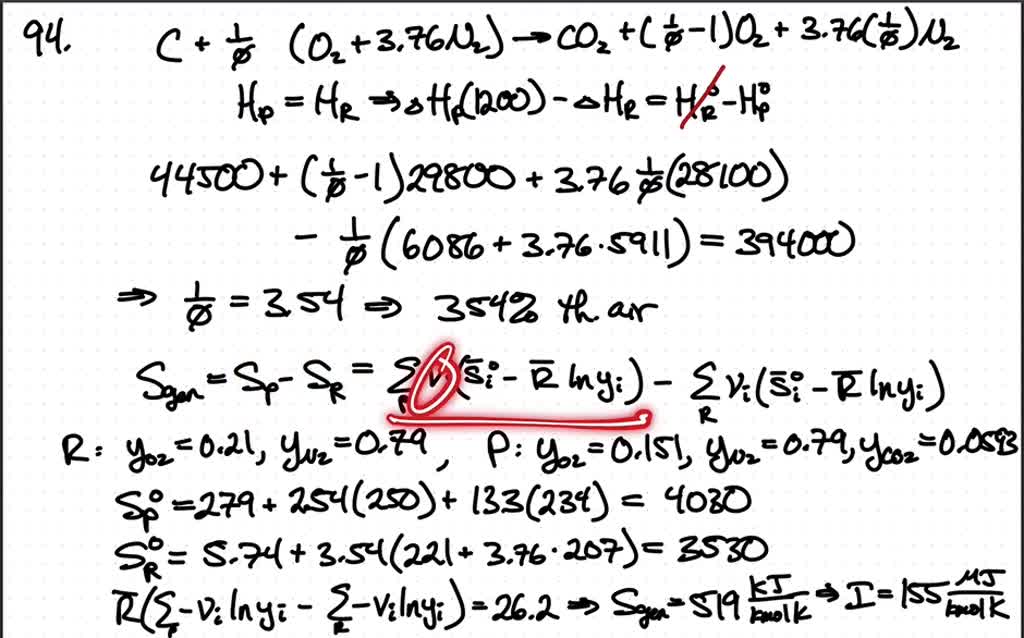 94. C + 1/φ (O₂ + 3.76N₂) → CO₂ + (1/φ - 1)O₂ + 3.76(1/φ)N₂
H_P = H_R ⇒ ΔH_P(1200) - ΔH_R = H_R° - H_P°
44500 + (1/φ - 1)29800 + 3.76 1/φ (28100)
- 1/φ (6086 + 3.76·5911) = 394000
⇒ 1/φ = 3.54 ⇒ 354% th air
S_gen = S_P - S_R = Σ_P ν_i(s̄_i° - R̄ ln y_i) - Σ_R ν_i(s̄_i° - R̄ ln y_i)
R: y_O₂ = 0.21, y_N₂ = 0.79, P: y_O₂ = 0.151, y_N₂ = 0.79, y_CO₂ = 0.0593
S_P° = 279 + 254(250) + 133(234) = 4030
S_R° = 5.74 + 3.54(221 + 3.76·207) = 3530
R̄(Σ_P -ν_i ln y_i - Σ_R -ν_i ln y_i) = 26.2 ⇒ S_gen = 519 kJ/kmolK ⇒ I = 155 MJ/kmolK